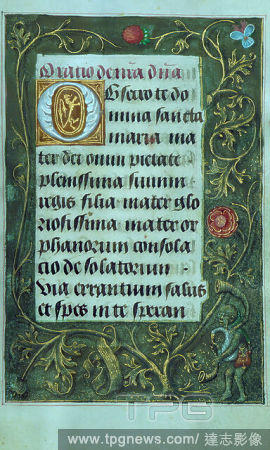 Oratio de nra dña
Obsecro te do
mina sancta
maria ma
ter dei omni pietate
plenissima summi
regis filia mater glo
riosissima mater or
phanorum consola
cio desolatorum
Via errantium salus
et spes in te speran
TPG
www.tpgnews.com/達志影像